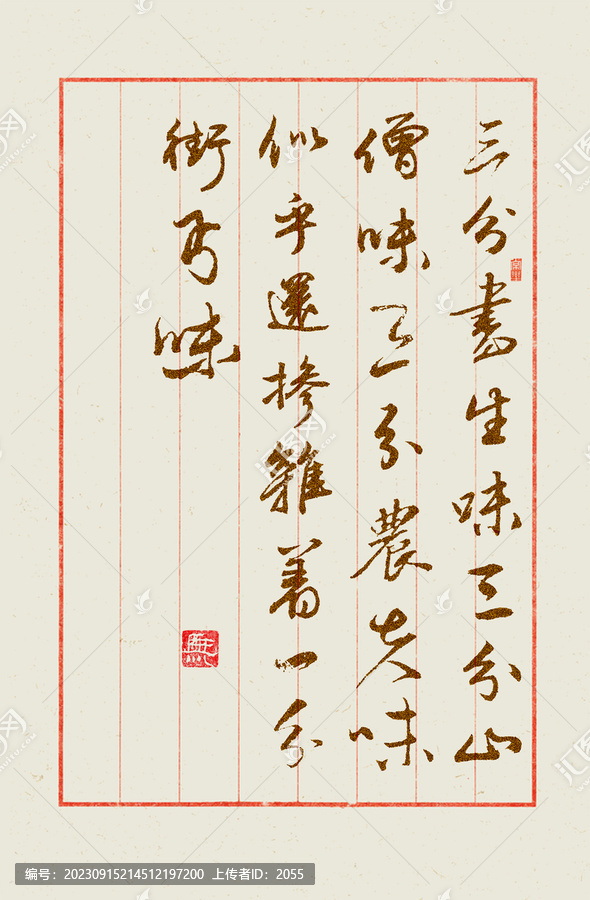 三分書生味三分山
僧味三分農夫味
似乎還摻雜着一分
街丐味
編号:20230915214512197200 上传者ID:2055